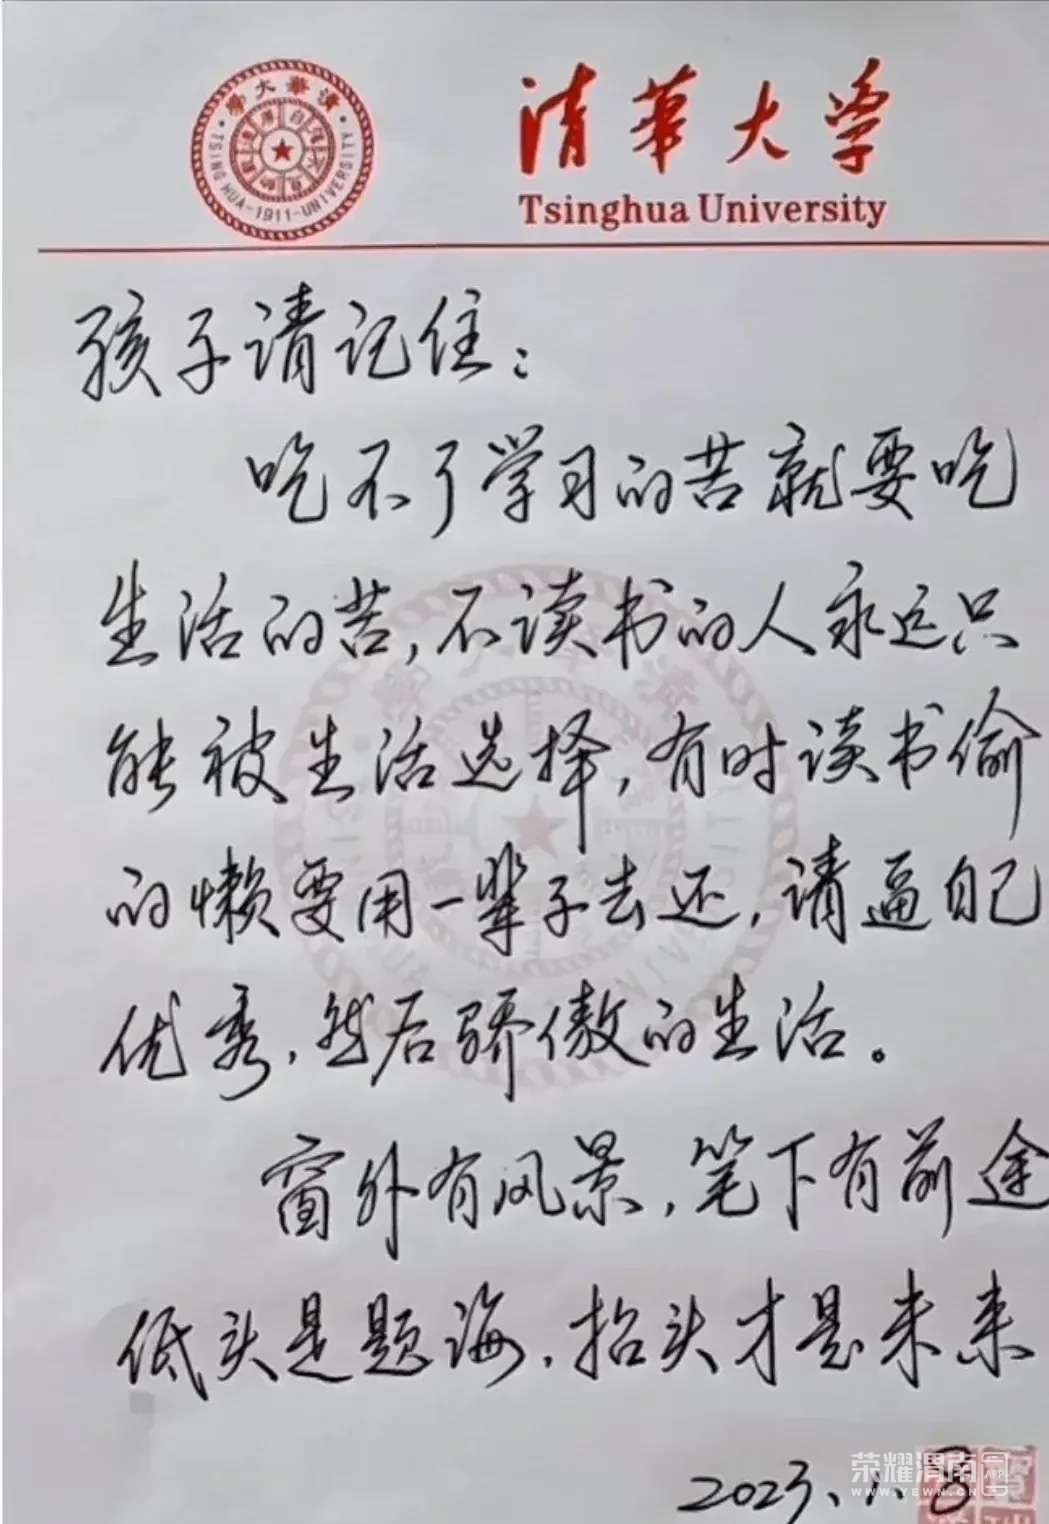 清華大学
Tsinghua University
TSINGHUA-1911-UNIVERSITY
孩子请记住：
吃不了学习的苦就要吃
生活的苦，不读书的人永远只
能被生活选择，有时读书偷
的懒要用一辈子去还，请逼自己
优秀，然后骄傲的生活。
窗外有风景，笔下有前途
低头是题海，抬头才是未来
2023.1.8
荣耀渭南 APP
WWW.YEWN.CN